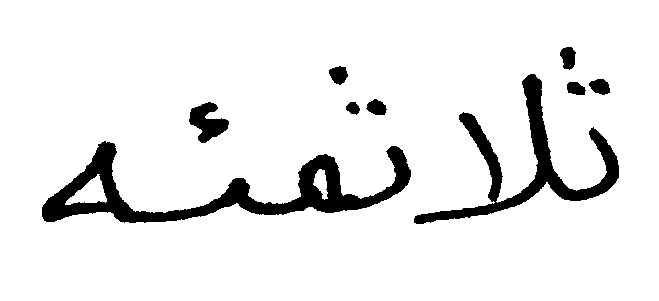 ثلاثمئه